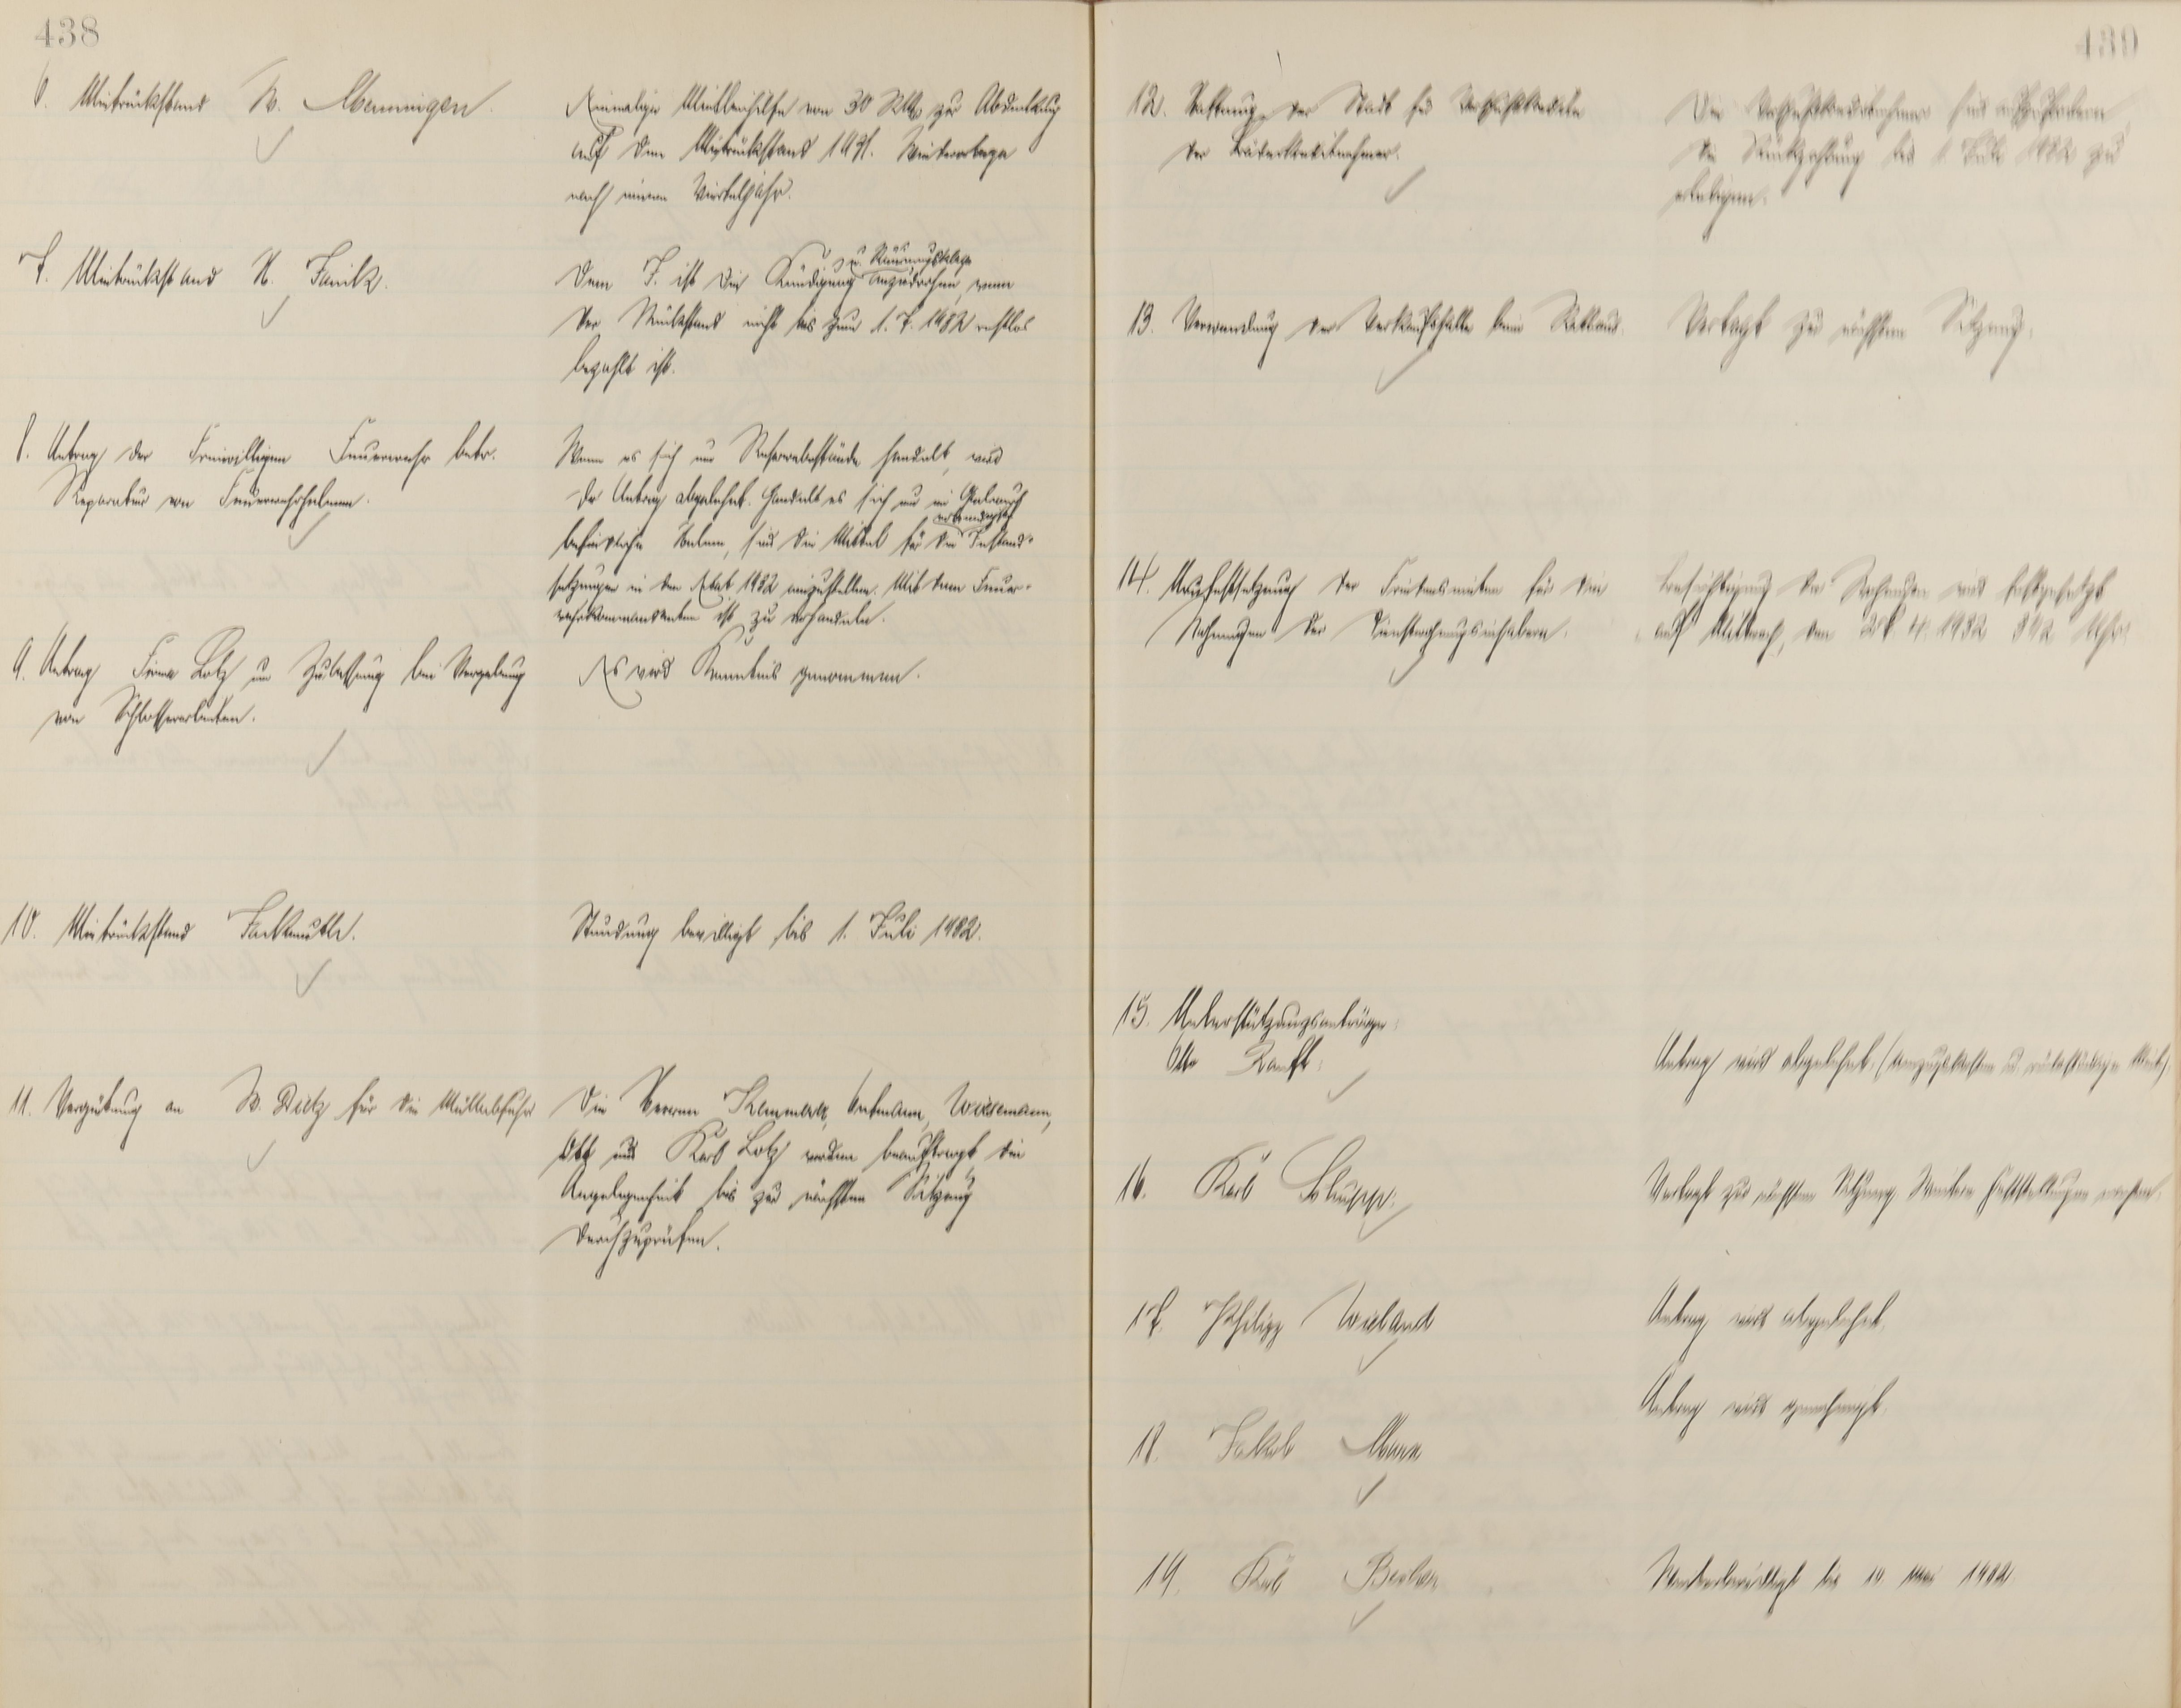 438
6. Mietrückstand W. Menningen.
Einmalige Mietbeihilfe von 30 RM zur Abdeckung
auf den Mietrückstand 1931. Wiedervorlage
nach einem Vierteljahr.
7. Mietrückstand H. Janik.
u. Räumungsklage
Dem J. ist die Kündigung anzudrohen, wenn
der Rückstand nicht bis zum 1.7.1932 restlos
bezahlt ist.
8. Antrag der Freiwilligen Feuerwehr betr.
Reparatur von Feuerwehrhelmen.
Wenn es sich um Reservebestände handelt, wird
der Antrag abgelehnt. Handelt es sich um im Gebrauch
befindliche Helme, sind die Mittel für die notwendigen Instand-
setzungen in den Etat 1932 einzustellen. Mit dem Feuer-
wehrkommandanten ist zu verhandeln.
9. Antrag Firma Lotz um Zulassung bei Vergebung
von Schlosserarbeiten.
Es wird Kenntnis genommen.
10. Mietrückstand
Stundung bewilligt bis 1. Juli 1932.
11. Vergütung an W. Dietz für die Müllabfuhr
Die Herren Wissemann,
Ott und Karl Lotz werden beauftragt die
Angelegenheit bis zur nächsten Sitzung
durchzuprüfen.
439
12. Haftung der Stadt für
der
Die sind aufzufordern
die Rückzahlung bis 1. Juli 1932 zu
erledigen.
13. Verwendung der Verkaufshalle beim Rathaus.
Vertagt zur nächsten Sitzung.
14. Neufestsetzung der Friedensmieten für die
Wohnungen der Dienstwohnungsinhaber.
Besichtigung der Wohnungen wird festgesetzt
auf Mittwoch, den 27.4.1932 8 1/2 Uhr.
15. Unterstützungsanträge:
Otto Ranft:
Antrag wird abgelehnt. (Umzugskosten u. rückständige Miete).
16. Karl Schupp:
Vertagt zur nächsten Sitzung. Weitere Feststellungen machen.
17. Philipp Wieland
Antrag wird abgelehnt.
18. Jakob Mann
Antrag wird genehmigt.
19. Karl Becker
Weiterbewilligt bis Mai 1932.